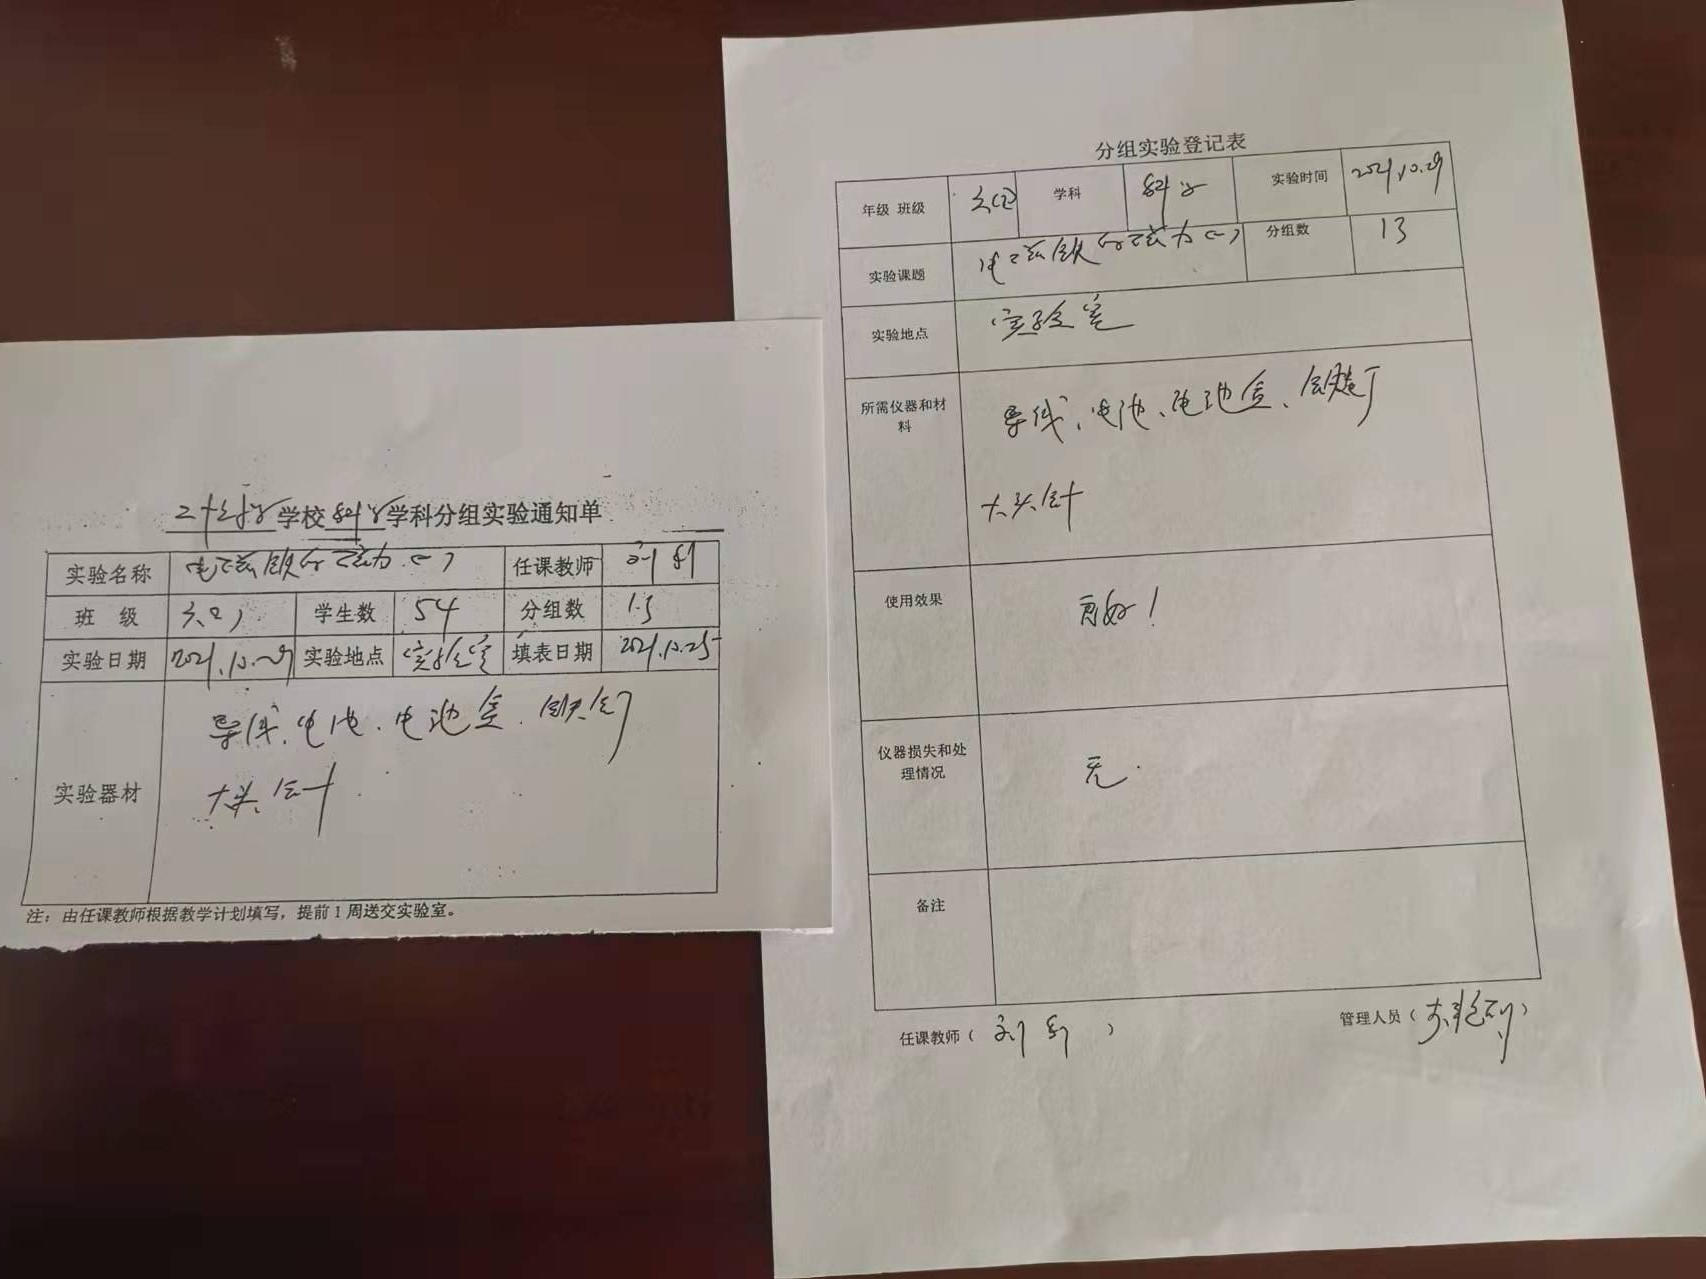 学校科学学科分组实验通知单
实验名称 电磁铁的磁力(一) 任课教师 刘
班 级 六(2) 学生数 54 分组数 13
实验日期 2021.10.29 实验地点 实验室 填表日期 2021.10.25
实验器材 导线、电池、电池盒、铁钉
大头针
注：由任课教师根据教学计划填写，提前1周送交实验室。
分组实验登记表
年级 班级 六(2) 学科 科学 实验时间 2021.10.29
实验课题 电磁铁的磁力(一) 分组数 13
实验地点 实验室
所需仪器和材料 导线、电池、电池盒、铁钉
大头针
使用效果 良好！
仪器损失和处理情况 无.
备注
任课教师（刘 ） 管理人员（ ）